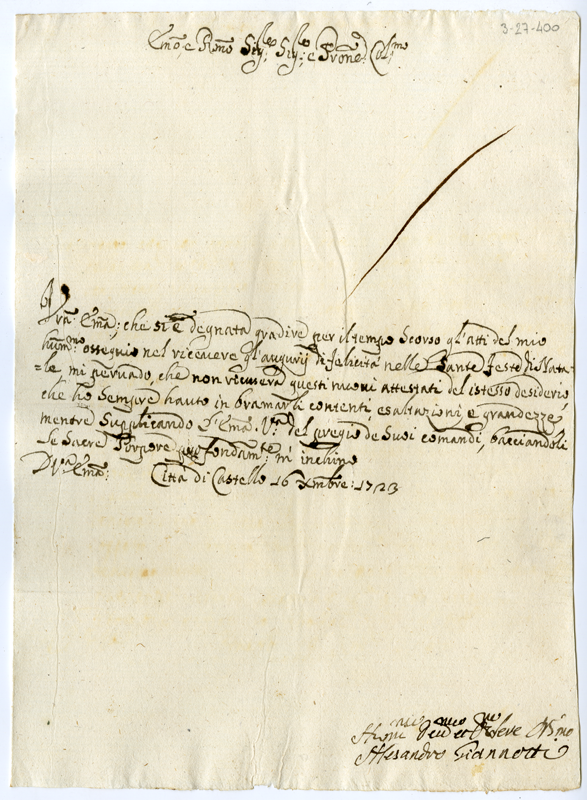 3-27-400
Emo, e Rmo Sig.re Sig.re, e Prone Col.mo
Vra. Ema;, che si è degnata gradire per il tempo scorso gl'atti del mio
hum.mo ossequio nel riceuere gl'augurij di felicità nelle Sante Feste di Nata-
=le mi persuado, che non ricuserà questi nuoui attestati del istesso desiderio,
che ho sempre hauto in bramarli contenti, esaltazioni, e grandezze,
mentre Supplicando l'Ema. V.a del pregio de Suoi comandi, bacciandoli
le Sacre Porpore profondam.te m'inchino
D V.ra Ema: Città di Castello 16 Xmbre: 1723
Hum.mo Deu.mo et
Alesandro Giannotti